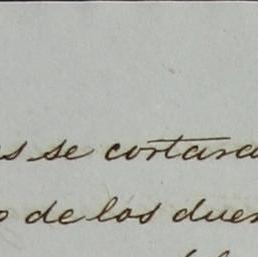 se cortara
de los due